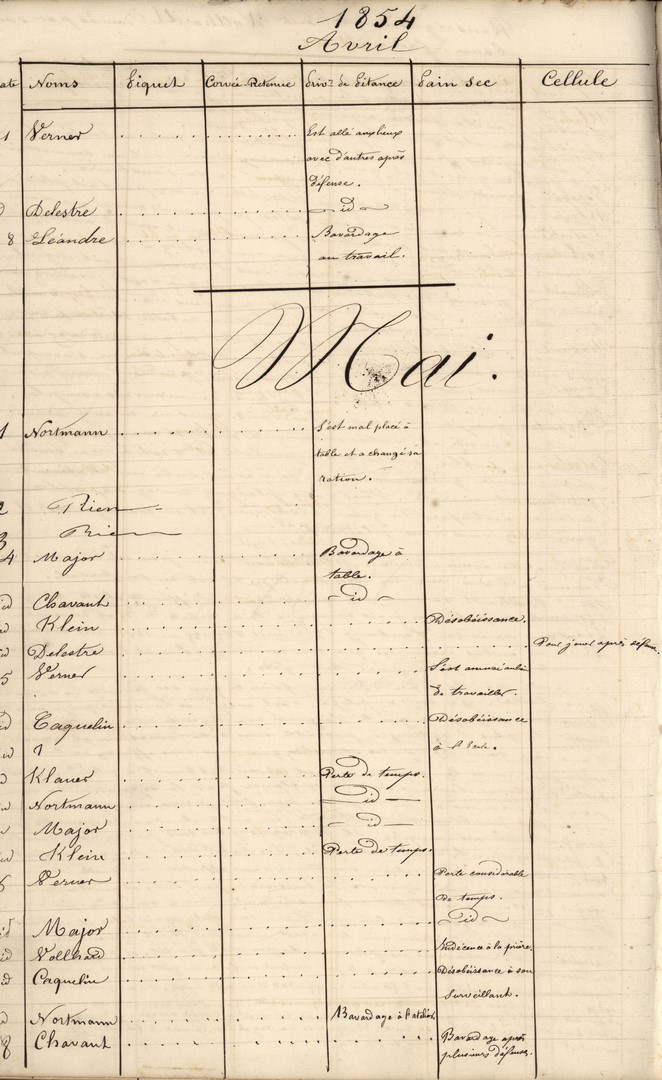 1854
Avril
ate Noms Piquet Corvée-Retenue Priv.on de Pitance Pain sec Cellule
1 Verner Est allé aux lieux
avec d'autres après
défense.
d Delestre id
8 Léandre Bavardage
au travail.
Mai.
1 Nortmann S'est mal placé à
table et a changé sa
ration.
2 Rien
3 Rien
4 Major Bavardage à
table.
id Chavant id
d Klein Désobéissance.
d Delestre Pour jouer après défense.
5 Verner S'est amusé au lieu
de travailler.
id Caquelin Désobéissance
d à l'Ecole.
d Klaner Perte de temps.
d Nortmann id
Major id
d Klein Perte de temps.
6 Verner Perte considérable
de temps.
id Major id
id Vollhard Indécence à la prière.
id Caquelin Désobéissance à son
surveillant.
d Nortmann Bavardage à l'atelier.
8 Chavant Bavardage après
plusieurs défenses.